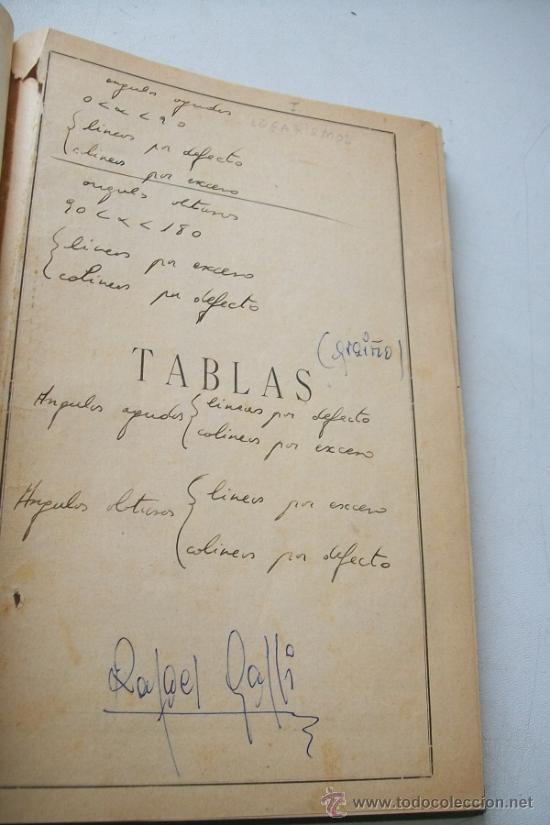 angulos agudos
I
LOGARITMOS
0 < α < 90
lineas por defecto
colineas por exceso
angulos obtusos
90 < α < 180
lineas por exceso
colineas por defecto
(graiño)
TABLAS
Angulos agudos { lineas por defecto
colineas por exceso
Angulos obtusos { lineas por exceso
colineas por defecto
Rafael
www.todocoleccion.net